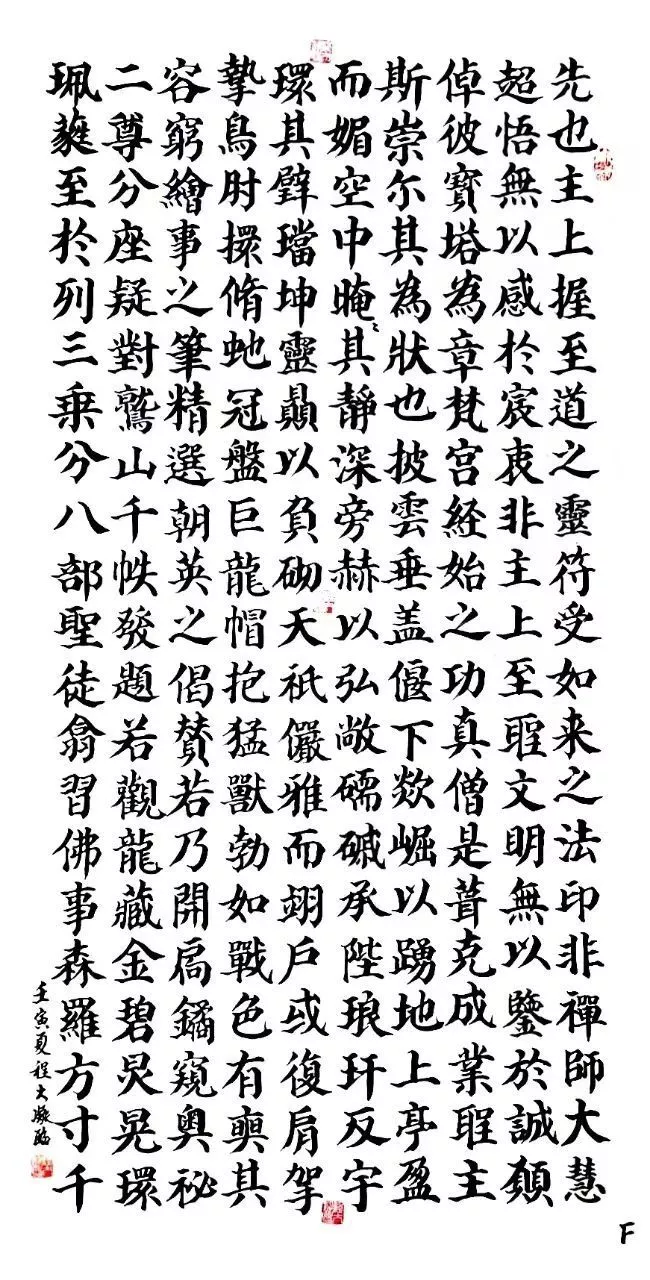 先也主上握至道之靈符受如来之法印非禪師大慧
超悟無以感於宸衷非主上至聖文明無以鑒於誠願
倬彼寶塔為章梵宫経始之功真僧是葺克成業聖主
斯崇尔其為狀也披雲垂盖偃下欻崛以踴地上亭盈
而媚空中晻〻其静深旁赫以弘敞礝磩承陛琅玕反宇
環其璧璫坤靈贔以負砌天祇儼雅而翊户或復肩拏
摯鳥肘擐脩虵冠盤巨龍帽抱猛獸勃如戰色有奭其
容窮繪事之筆精選朝英之偈賛若乃開扃鐍窺奥祕
二尊分座疑對鷲山千帙發題若觀龍藏金碧炅晃環
珮蕤至於列三乗分八部聖徒翕習佛事森羅方寸千
壬寅夏程大凝臨
F